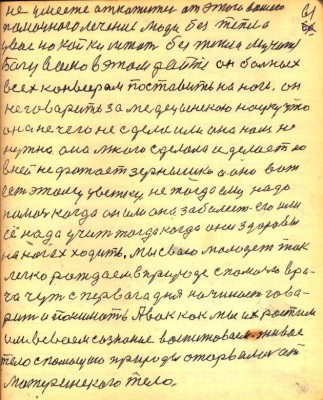 не умеете откажитесь от этого вашего
61
помочного лечение Люди без тепла
у вас на койки лежат без тепла Мучить
Богу в этом дайте он больных
всех конвеерам поставить на ноги. он
не говарить за медецинскою науку что
она нечего не сделала или она нам не
нужна. она много сделала и делает но
в ней не хватает зернышко а оно вот
есть этому цветку не тогда ему надо
помоч когда он или она заболеет. его или
её надо учить тогда когда они здоровы
на ногах ходить. Мы свого молодет так
легко рождаем в природе с помощю вра-
ча чуть с первага дня начинает гава-
рить и понимать А вот как мы их растим
им вводим сознание воспитоваем. живое
тело с помощию природы оторвали от
Материнского тело.